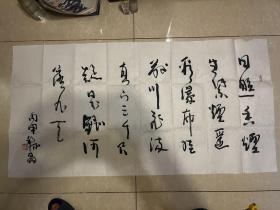 日照香爐
生紫煙遥
看瀑布挂
前川飛流
直下三千尺
疑是銀河
落九天